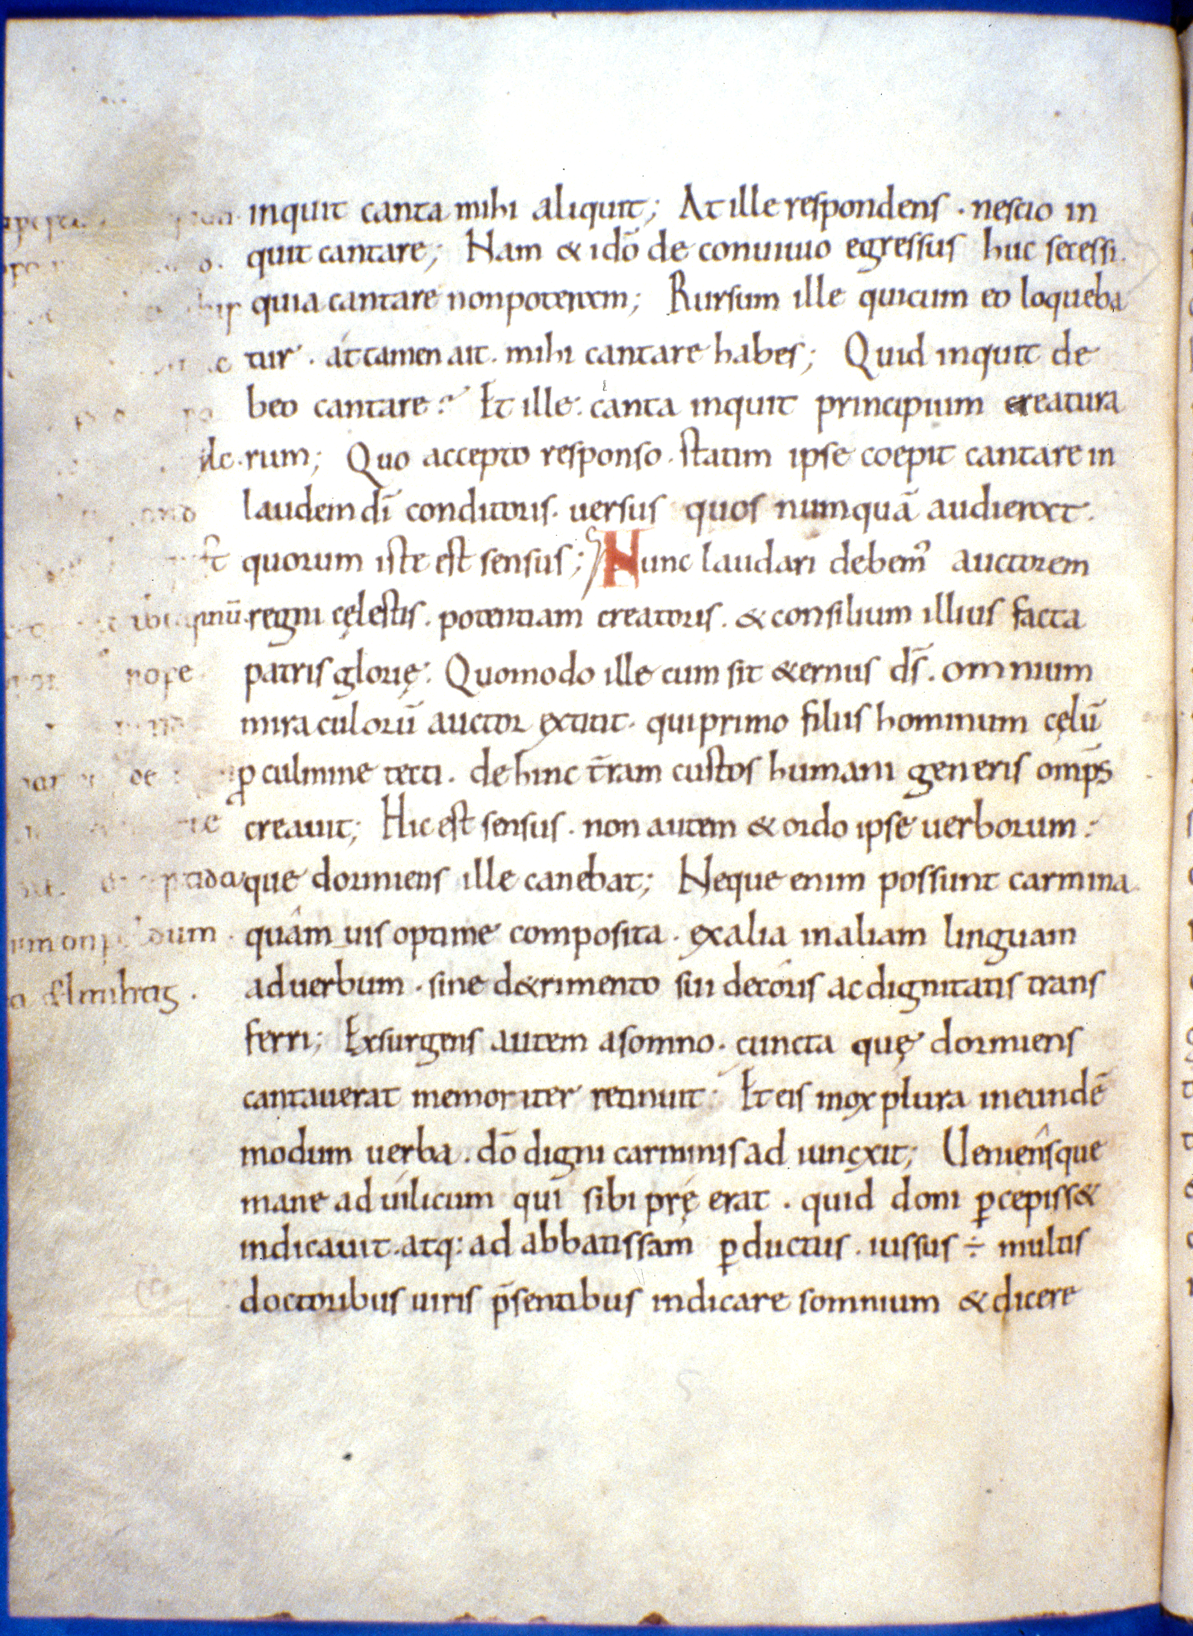 inquit canta mihi aliquit; At ille respondens · nescio in
quit cantare; Nam & idō de conuiuio egressus huc secessi.
quia cantare non poteram; Rursum ille qui cum eo loqueba
tur · attamen ait · mihi cantare habes; Quid inquit de
beo cantare? Et ille. canta inquit principium creatura
rum; Quo accepto responso · statim ipse coepit cantare in
laudem dī conditoris. uersus quos numquā audierat.
quorum iste est sensus; Nunc laudari debem᾽ auctorem
regni cęlestis. potentiam creatoris. & consilium illius facta
patris glorię. Quomodo ille cum sit &ernus ds̄. omnium
miraculorū auctor extitit. qui primo filiis hominum cęlū
ꝓ culmine tecti. dehinc t̄ram custos humani generis omp̄s
creauit; Hic est sensus. non autem & ordo ipse uerborum.
que dormiens ille canebat; Neque enim possunt carmina
quamuis optime composita. ex alia in aliam linguam
ad uerbum. sine d&rimento sui decoris ac dignitatis trans
ferri; Exsurgens autem a somno. cuncta quę dormiens
cantauerat memoriter retinuit. Et eis mox plura in eundē
modum uerba. dō digni carminis adiuncxit; Ueniensque
mane ad uilicum qui sibi prę erat. quid doni ꝑcepiss&
indicauit. atq: ad abbatissam ꝑductus. iussus ÷ multis
doctoribus uiris p̄sentibus indicare somnium & dicere